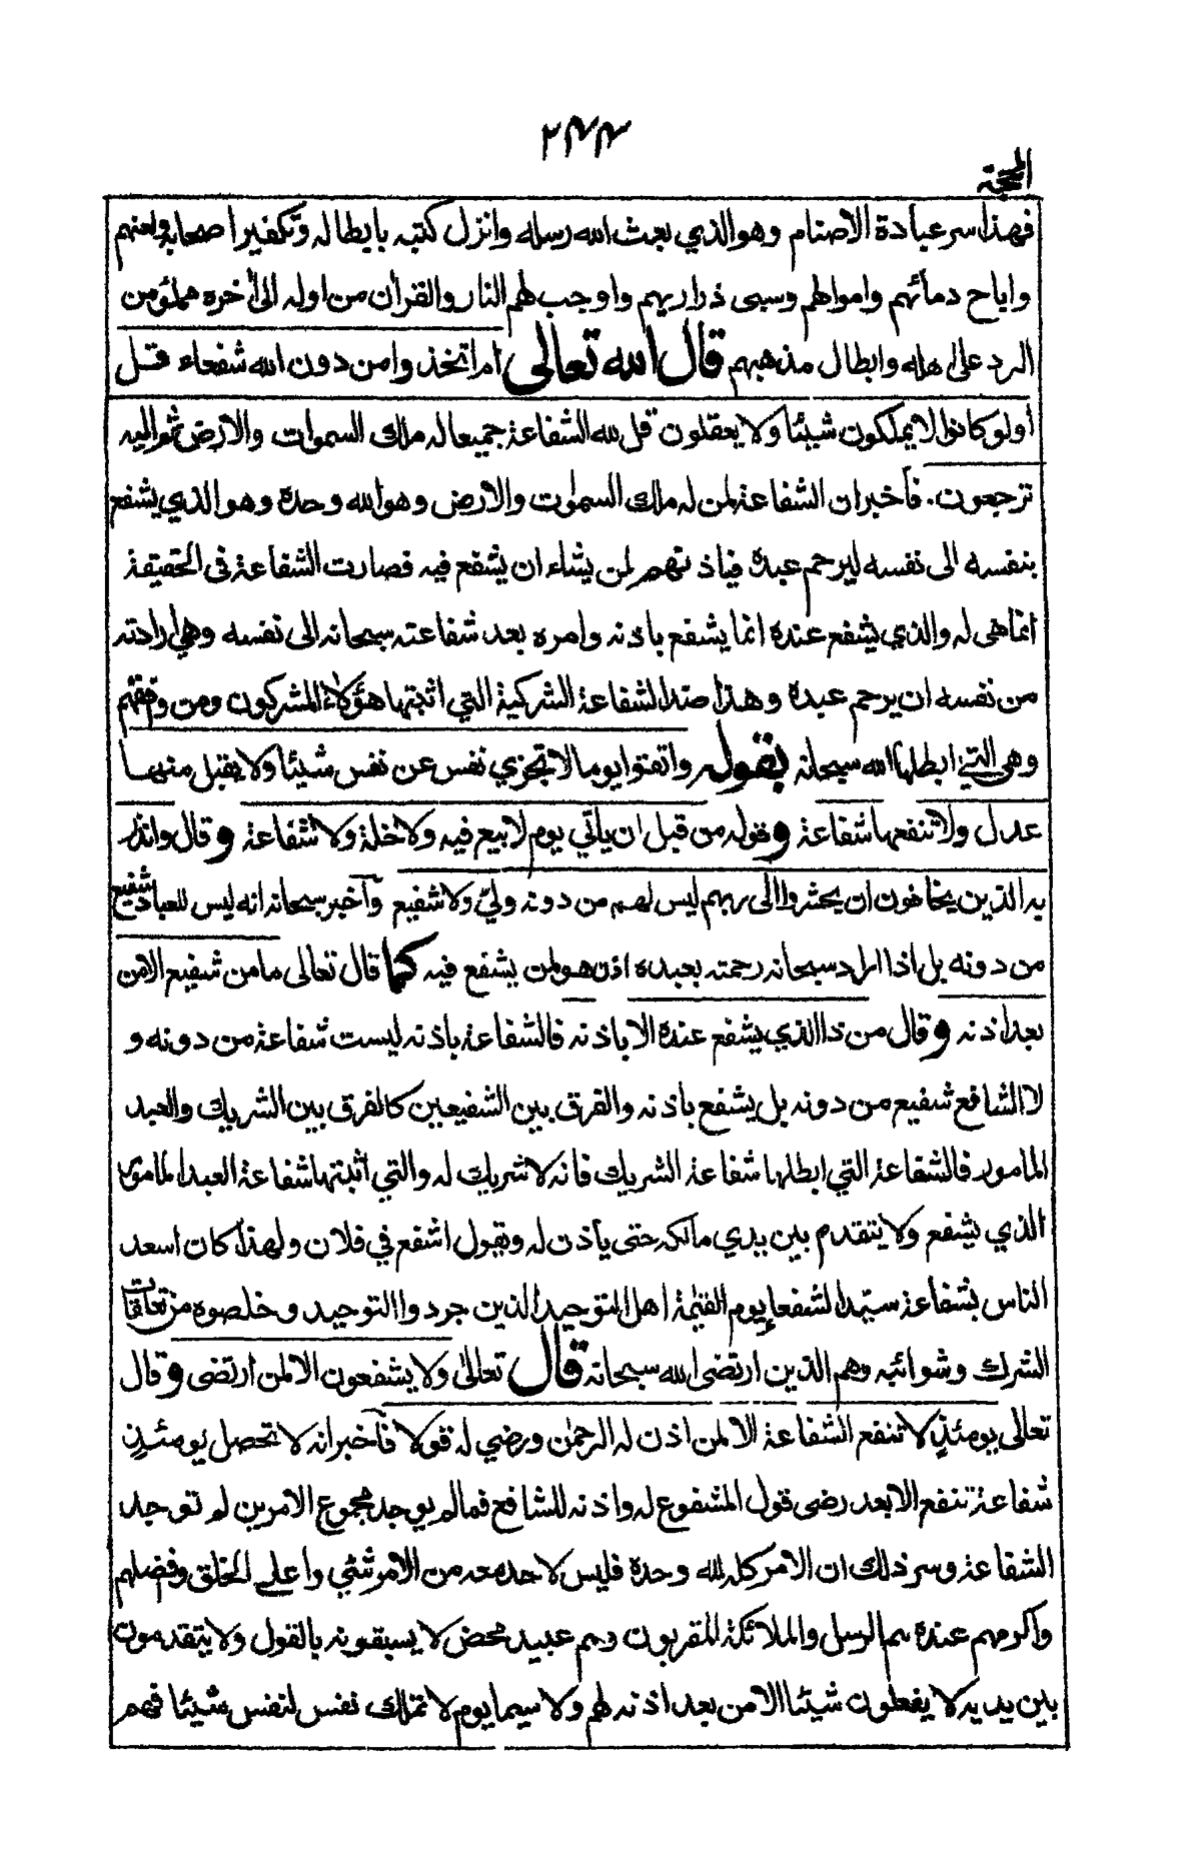 ٢٤٤
فهذا سر عبادة الاصنام وهو الذي بعث الله رسله وانزل كتبه بابطاله وتكفير اصحابه ولعنهم
واباح دمائهم واموالهم وسبى ذراريهم واوجب لهم النار والقران من اوله الى اخره مملؤ من
الرد على اهله وابطال مذهبهم قال الله تعالى ام اتخذوا من دون الله شفعاء قل
أولو كانوا لا يملكون شيئا ولا يعقلون قل لله الشفاعة جميعا له ملك السموات والارض ثم اليه
ترجعون. فأخبر ان الشفاعة لمن له ملك السموات والارض وهو الله وحده وهو الذي يشفع
بنفسه الى نفسه ليرحم عبده فياذن هو لمن يشاء ان يشفع فيه فصارت الشفاعة فى الحقيقة
انما هى له والذي يشفع عنده انما يشفع باذنه وامره بعد شفاعته سبحانه الى نفسه وهي ارادته
من نفسه ان يرحم عبده وهذا ضد الشفاعة الشركية التي اثبتها هؤلاء المشركون ومن وافقهم
وهى التي ابطلها الله سبحانه بقوله واتقوا يوما لا تجزي نفس عن نفس شيئا ولا يقبل منها
عدل ولا تنفعها شفاعة وقوله من قبل ان يأتي يوم لا بيع فيه ولا خلة ولا شفاعة وقال وانذر
به الذين يخافون ان يحشروا الى ربهم ليس لهم من دونه ولي ولا شفيع وأخبر سبحانه انه ليس للعباد شفيع
من دونه بل اذا اراد سبحانه رحمته بعبده اذن هو لمن يشفع فيه كما قال تعالى ما من شفيع الا من
بعد اذنه وقال من ذا الذي يشفع عنده الا باذنه فالشفاعة باذنه ليست شفاعة من دونه و
لا الشافع شفيع من دونه بل يشفع باذنه والفرق بين الشفيعين كالفرق بين الشريك والعبد
المامور فالشفاعة التي ابطلها شفاعة الشريك فانه لا شريك له والتي اثبتها شفاعة العبد المامور
الذي يشفع ولا يتقدم بين يدي مالكه حتى يأذن له ويقول اشفع في فلان ولهذا كان اسعد
الناس بشفاعة سيد الشفعاء يوم القيمة اهل التوحيد الذين جردوا التوحيد وخلصوه من تعلقات
الشرك وشوائبه وهم الذين ارتضى الله سبحانه قال تعالى ولا يشفعون الا لمن ارتضى وقال
تعالى يومئذ لا تنفع الشفاعة الا لمن اذن له الرحمن ورضي له قولا فأخبر انه لا تحصل يومئذ
شفاعة تنفع الا بعد رضى قول المشفوع له واذنه للشافع فمالم يوجد مجموع الامرين لم توجد
الشفاعة وسر ذلك ان الامر كله لله وحده فليس لاحد معه من الامر شئي واعلى الخلق وفضلهم
واكرمهم عنده هم الرسل والملائكة المقربون وهم عبيد محض لا يسبقونه بالقول ولا يتقدمون
بين يديه لا يفعلون شيئا الا من بعد اذنه لهم ولا سيما يوم لا تملك نفس لنفس شيئا فهم